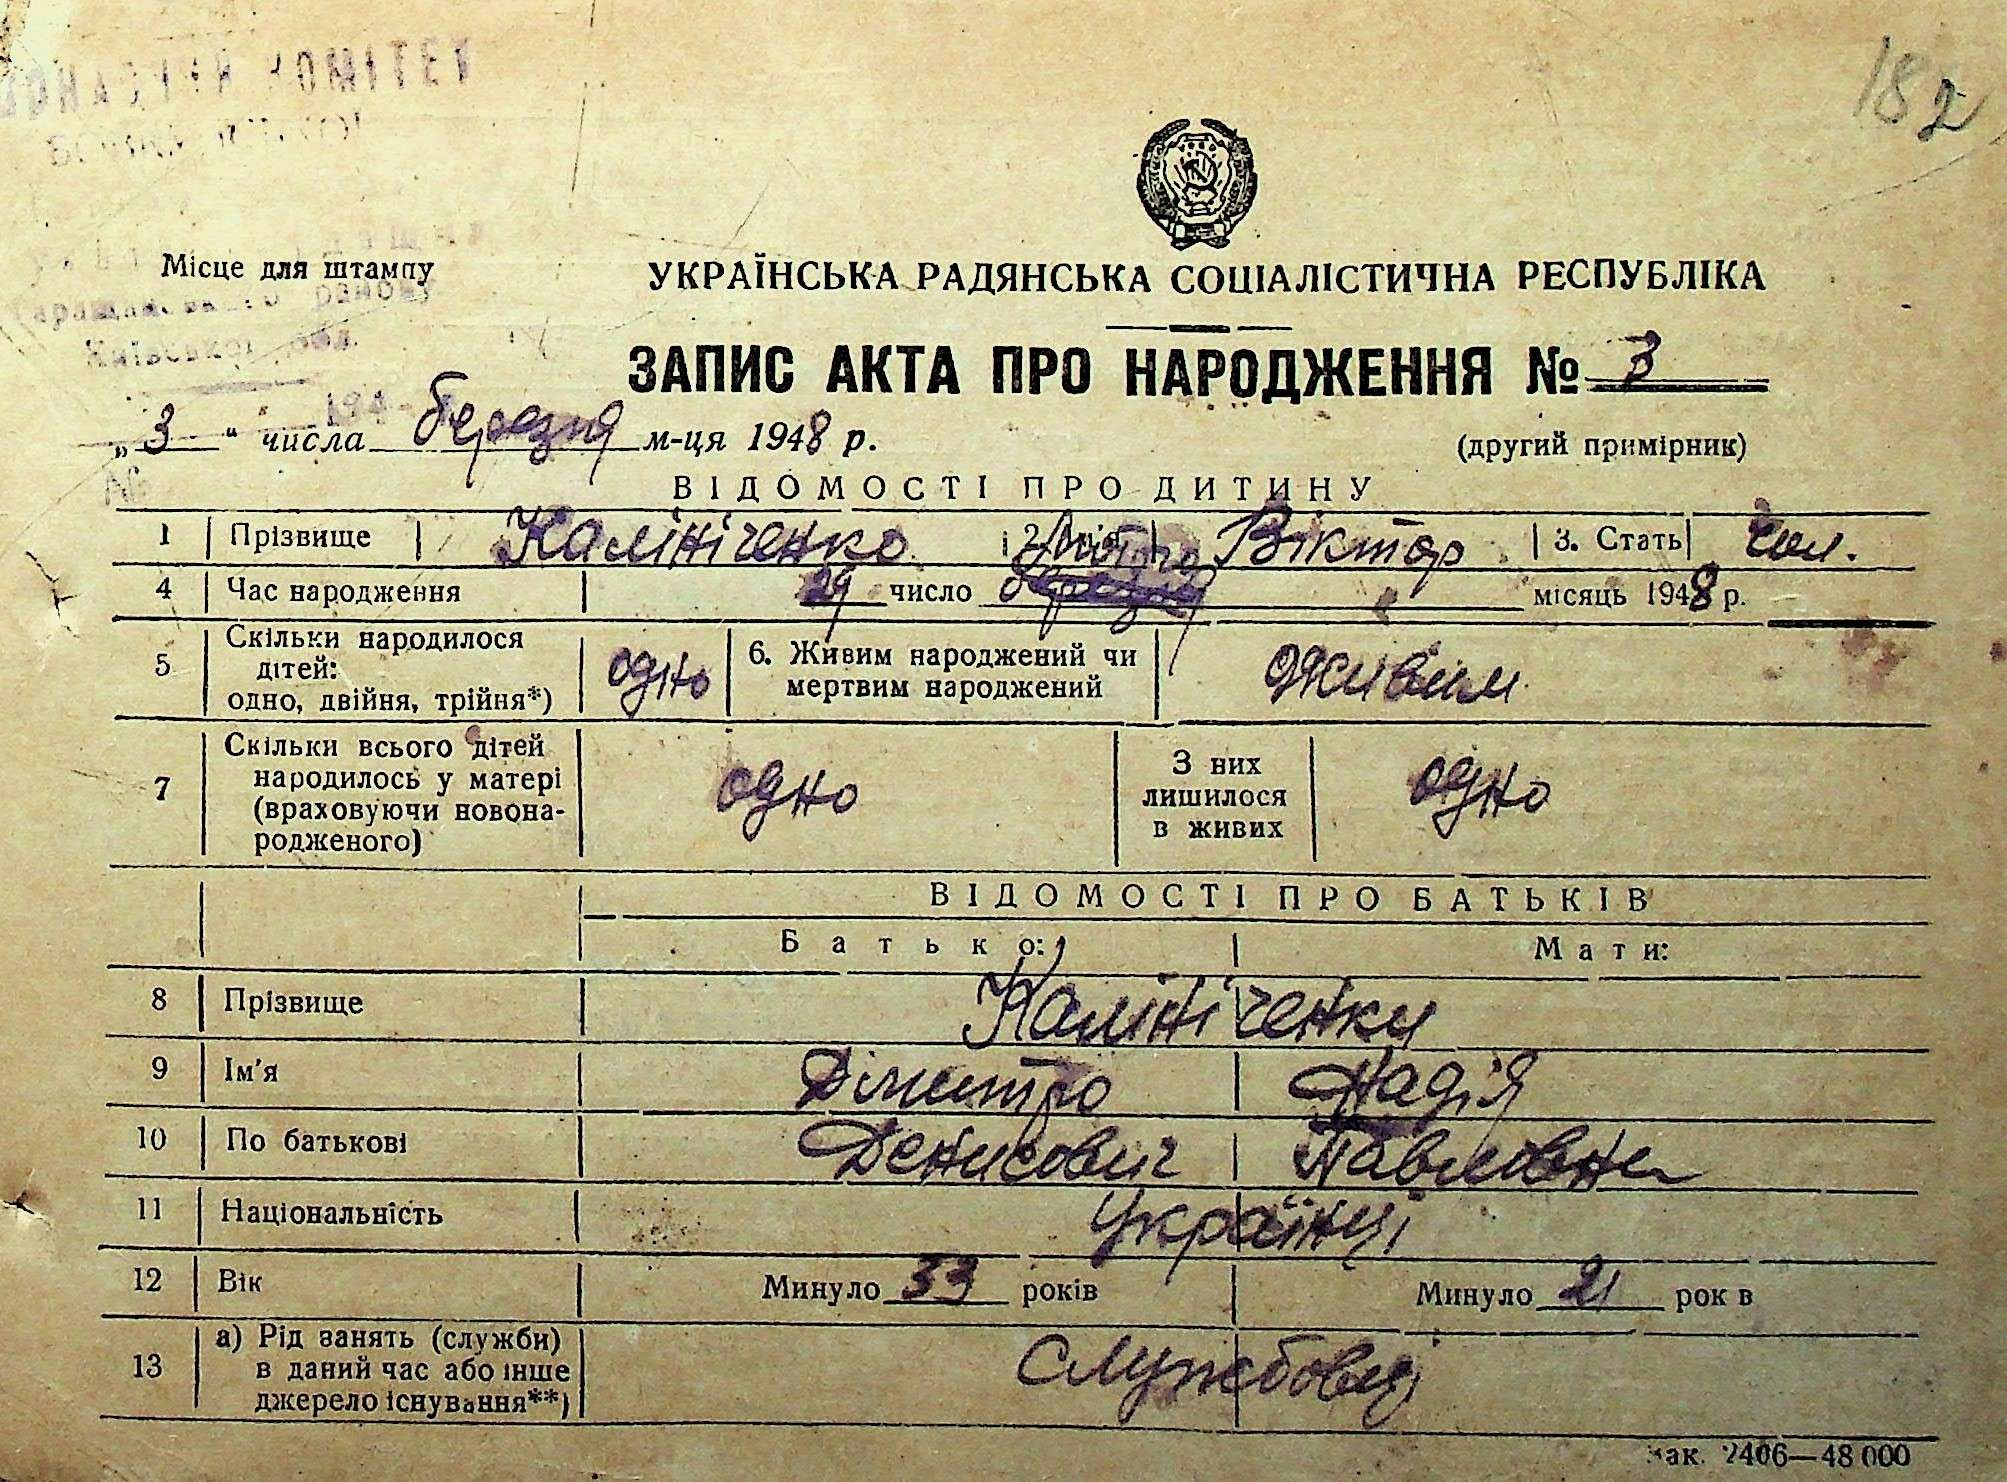 КОМІТЕТ
182
Місце для штампу
району
Київської обл.
УКРАЇНСЬКА РАДЯНСЬКА СОЦІАЛІСТИЧНА РЕСПУБЛІКА
ЗАПИС АКТА ПРО НАРОДЖЕННЯ № 3
„ 3 “ числа березня м-ця 1948 р.
(другий примірник)
№
ВІДОМОСТІ ПРО ДИТИНУ
1 Прізвище Калініченко 2. Ім'я Віктор 3. Стать чол.
4 Час народження 29 число лютого березня місяць 1948 р.
5 Скільки народилося дітей: одно, двійня, трійня*) одно 6. Живим народжений чи мертвим народжений живим
7 Скільки всього дітей народилось у матері (враховуючи новона-родженого) одно З них лишилося в живих одно
ВІДОМОСТІ ПРО БАТЬКІВ
Батько: Мати:
8 Прізвище Калініченки
9 Ім'я Дімитро Надія
10 По батькові Денисович Павлівна
11 Національність Українці
12 Вік Минуло 33 років Минуло 21 рок в
13 а) Рід занять (служби) в даний час або інше джерело існування**) Службовці
Зак. 2406—48 000